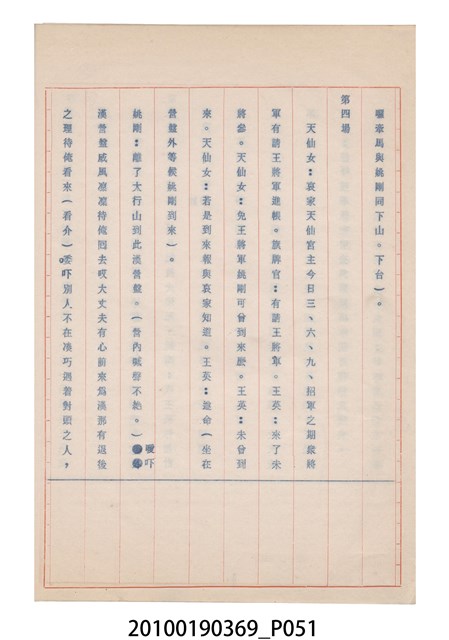 章馬與姚剛同下山。下台）。
第四場
天仙女：哀家天仙宮主今日三、六、九、招軍之期眾將
軍有請王將軍進帳。旗牌官：有請王將軍。王英：來了末
將參。天仙女：免王將軍姚剛可曾到來麽。王英：未曾到
來。天仙女：若是到來報與哀家知道。王英：遵命（坐在
營盤外等候姚剛到來）。
姚剛：離了太行山到此漢營盤。（營內喊聲不絕。）嗳吓
漢營盤威風凜凜待俺回去哎大丈夫有心前來為漢那有退後
之理待俺看來（看介）。丟吓別人不在湊巧遇着對頭之人，
20100190369_P051